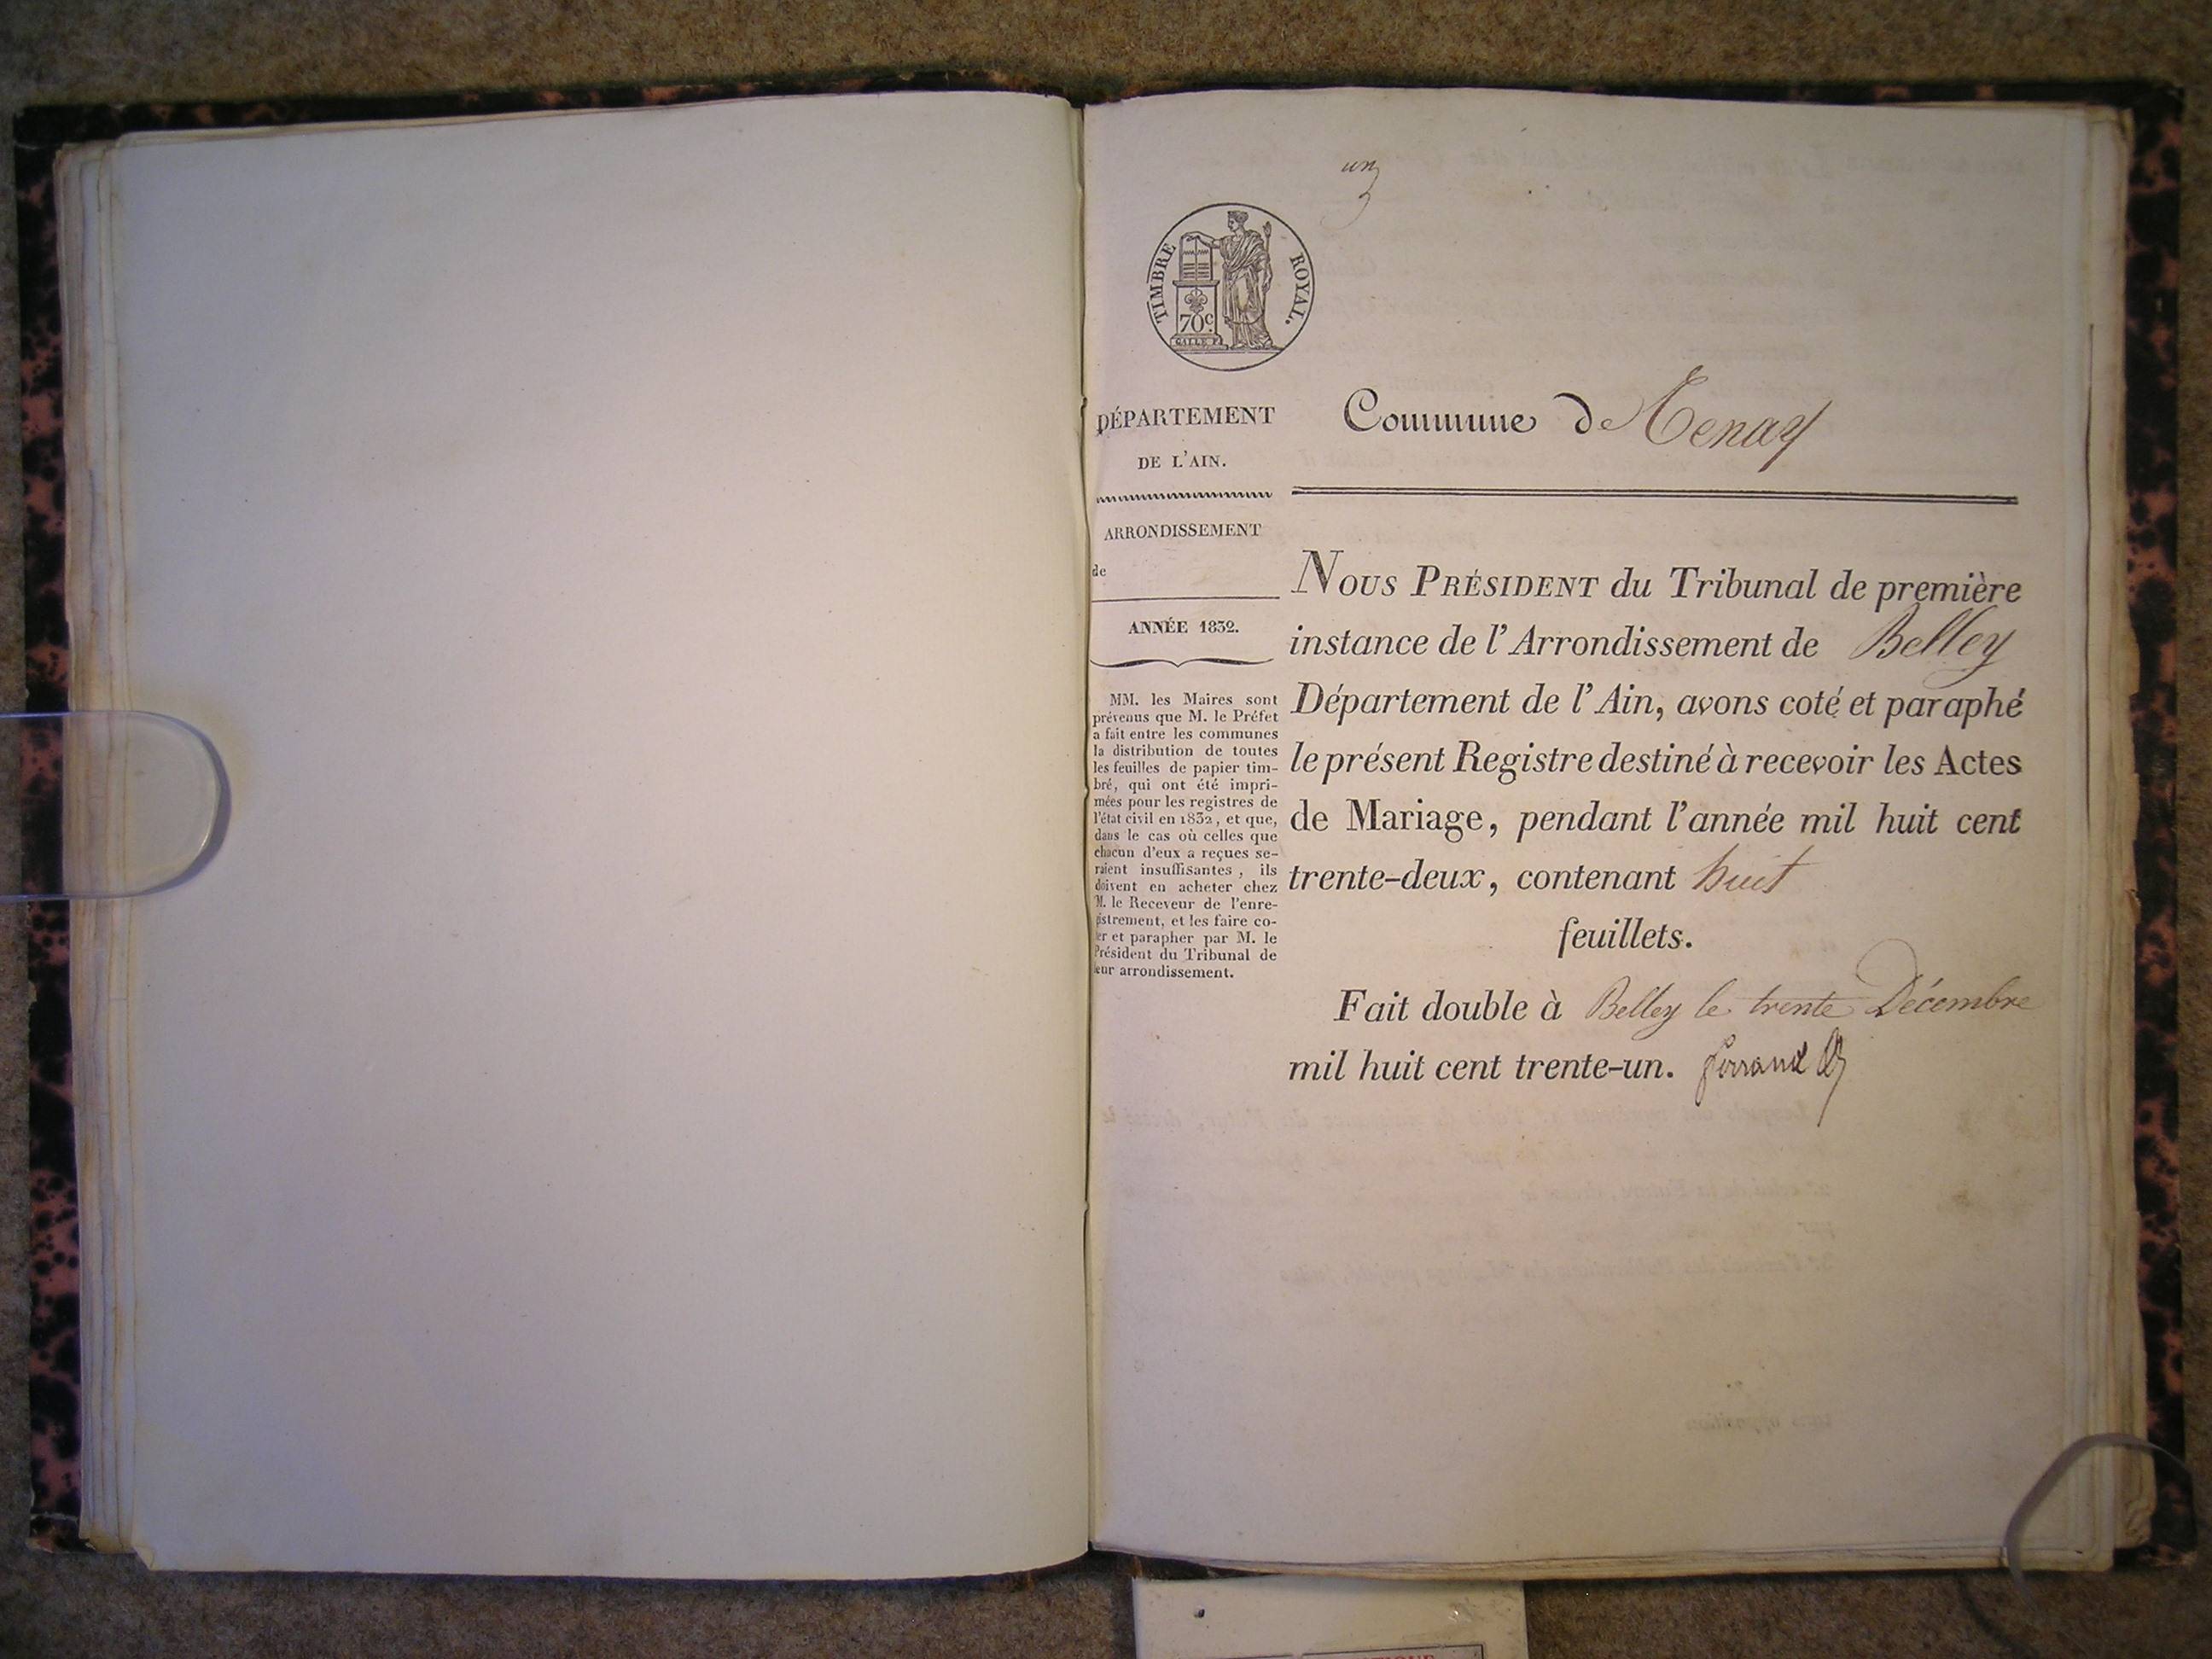 un
TIMBRE ROYAL.
70c.
GALLE F.
DÉPARTEMENT
DE L'AIN.
ARRONDISSEMENT
de
ANNÉE 1832.
MM. les Maires sont
prévenus que M. le Préfet
a fait entre les communes
la distribution de toutes
les feuilles de papier tim-
bré, qui ont été impri-
mées pour les registres de
l'état civil en 1832, et que,
dans le cas où celles que
chacun d'eux a reçues se-
raient insuffisantes, ils
doivent en acheter chez
M. le Receveur de l'enre-
gistrement, et les faire co-
ter et parapher par M. le
Président du Tribunal de
leur arrondissement.
Commune de Tenay
NOUS PRÉSIDENT du Tribunal de première
instance de l'Arrondissement de Belley
Département de l'Ain, avons coté et paraphé
le présent Registre destiné à recevoir les Actes
de Mariage, pendant l'année mil huit cent
trente-deux, contenant huit
feuillets.
Fait double à Belley le trente Décembre
mil huit cent trente-un. ferrand